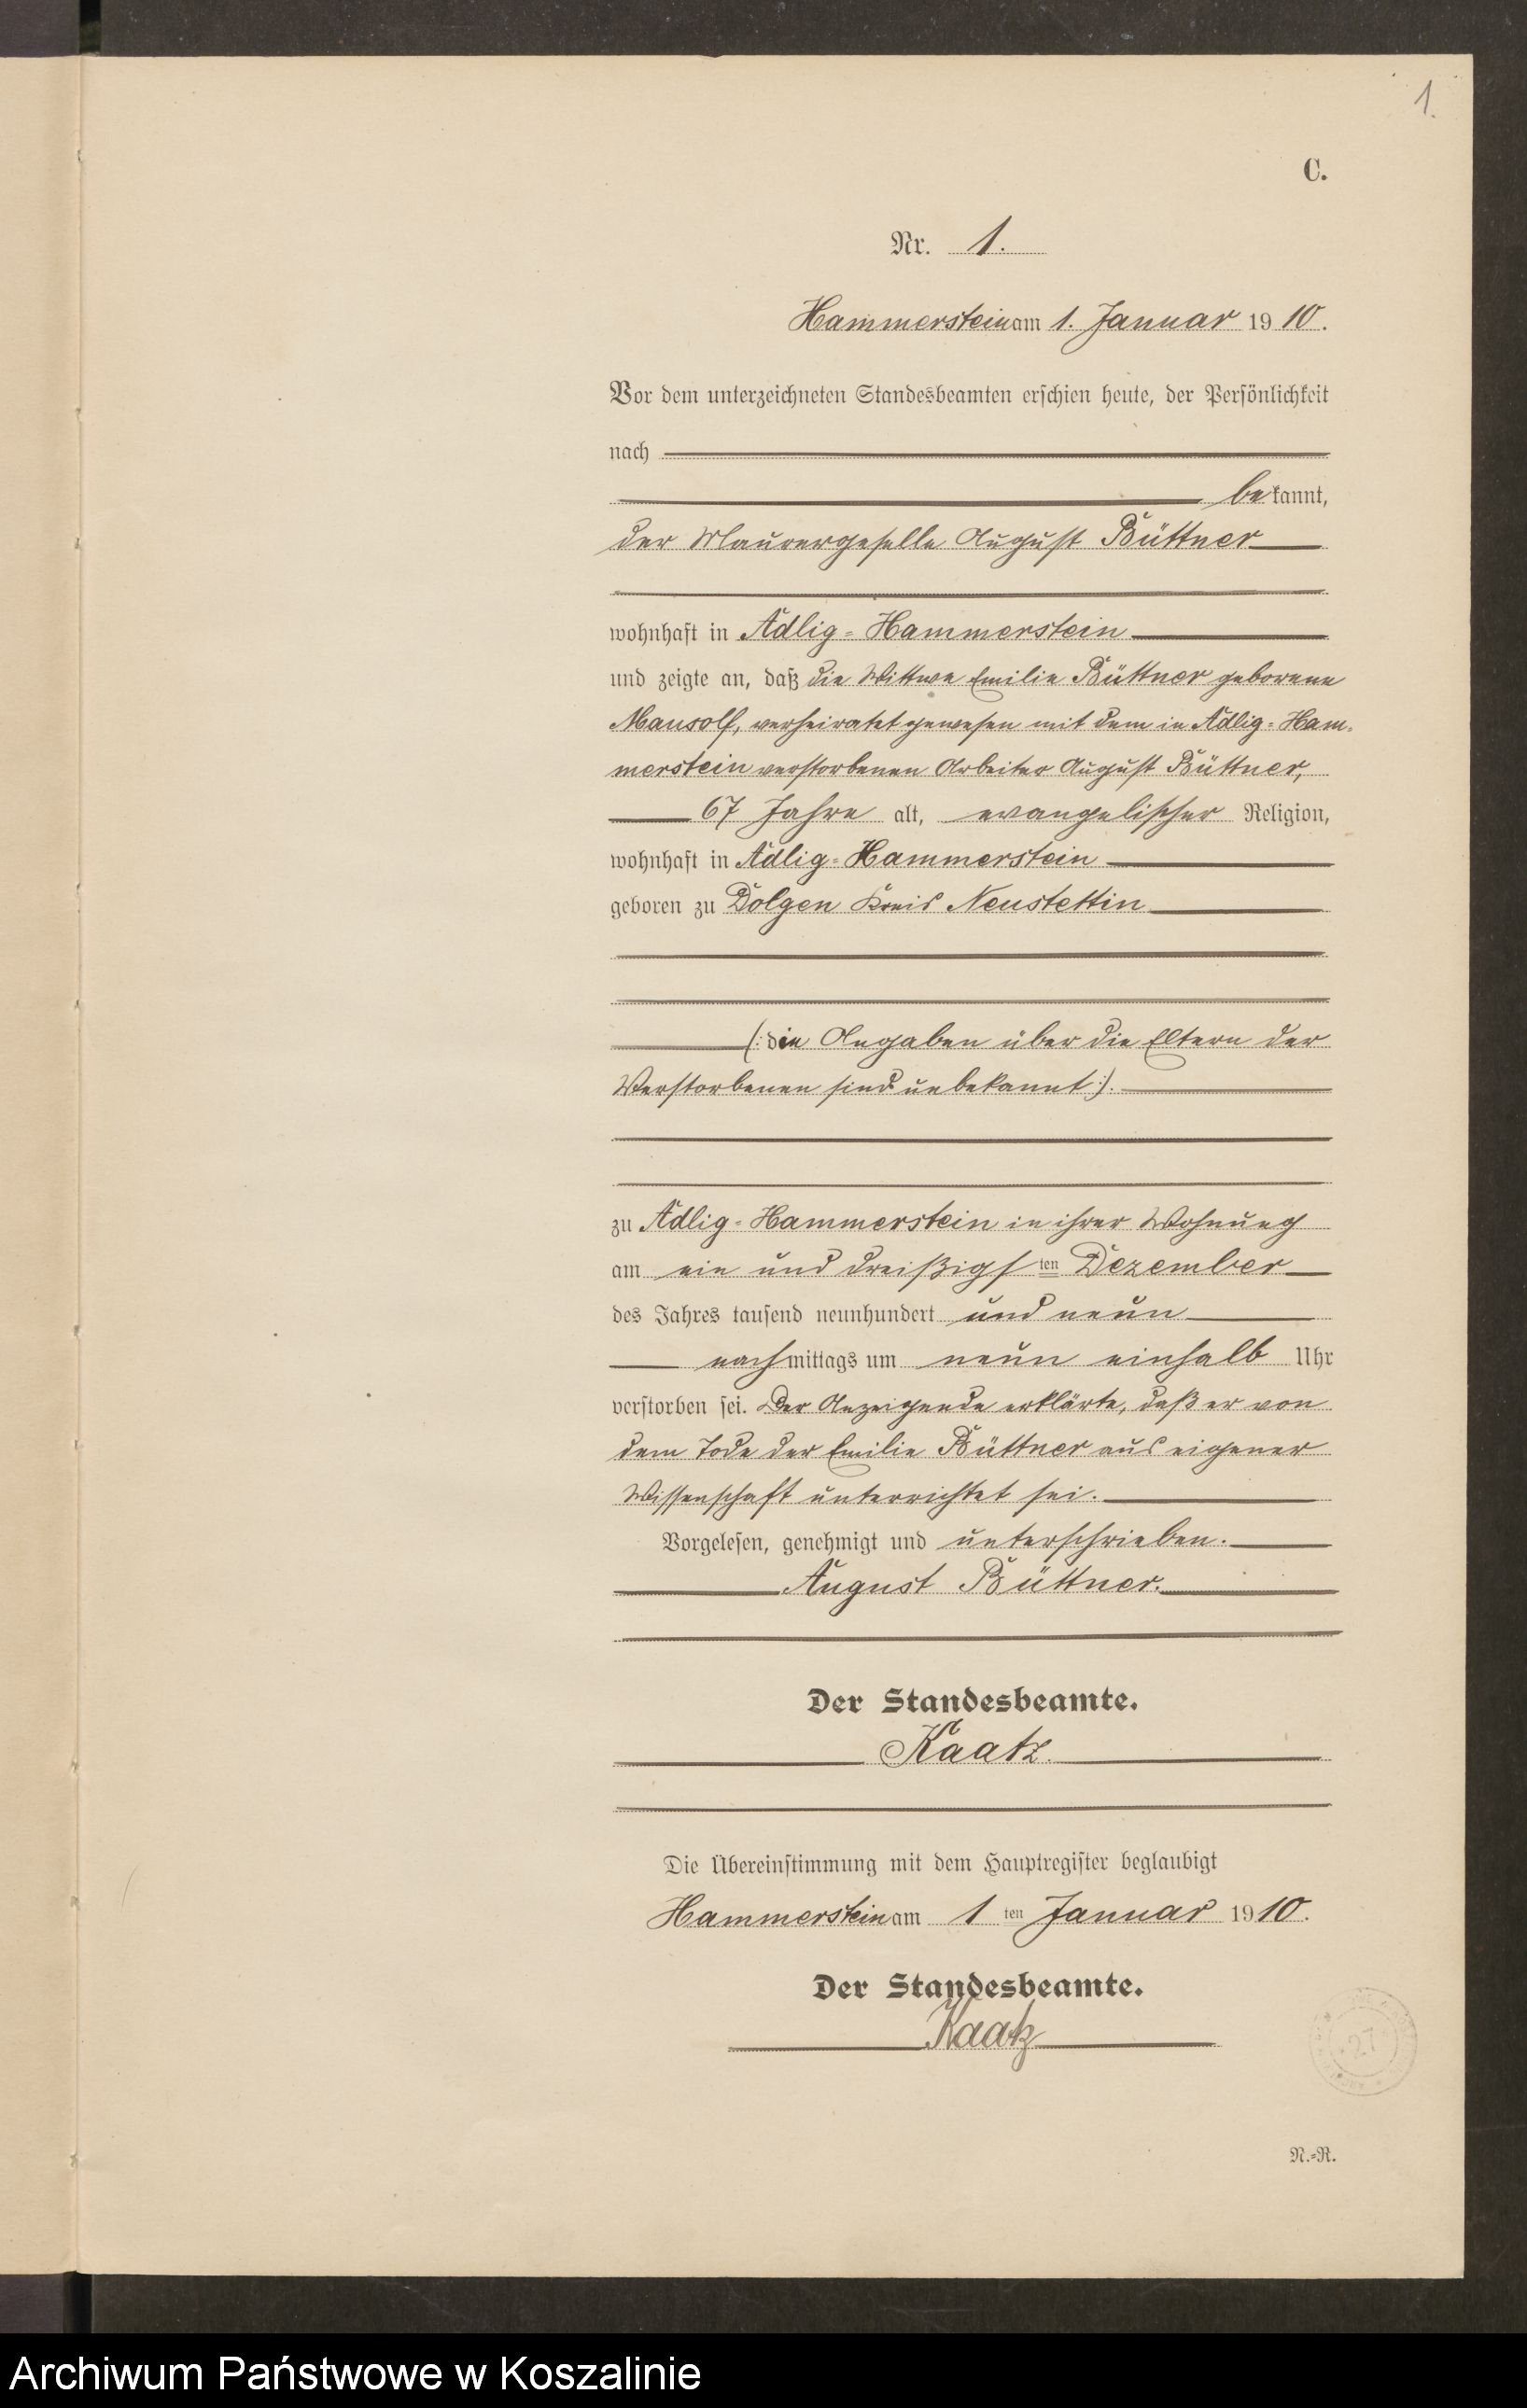 1.
C.
Nr. 1.
Hammerstein am 1. Januar 1910.
Vor dem unterzeichneten Standesbeamten erschien heute, der Persönlichkeit
nach
bekannt,
der Maurergeselle August Büttner
wohnhaft in Adlig-Hammerstein
und zeigte an, daß die Wittwe Emilie Büttner geborene
Mansolf, verheiratet gewesen mit dem in Adlig-Ham-
merstein verstorbenen Arbeiter August Büttner,
67 Jahre alt, evangelischer Religion,
wohnhaft in Adlig-Hammerstein
geboren zu Dolgen Kreis Neustettin
(: die Angaben über die Eltern der
Verstorbenen sind unbekannt :).
zu Adlig-Hammerstein in ihrer Wohnung
am ein und dreißigsten Dezember
des Jahres tausend neunhundert und neun
nachmittags um neun einhalb Uhr
verstorben sei. Der Anzeigende erklärte, daß er von
dem Tode der Emilie Büttner aus eigener
Wissenschaft unterrichtet sei.
Vorgelesen, genehmigt und unterschrieben.
August Büttner.
Der Standesbeamte.
Kaatz.
Die Übereinstimmung mit dem Hauptregister beglaubigt
Hammerstein am 1ten Januar 1910.
Der Standesbeamte.
Kaatz
27
N.-R.
Archiwum Państwowe w Koszalinie